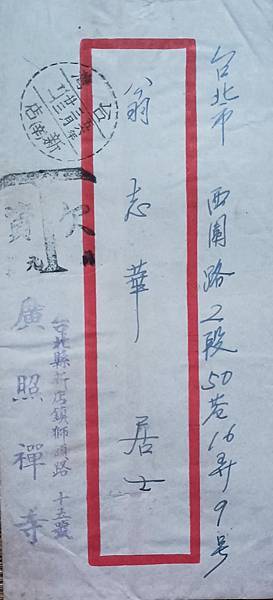 台北市 西園路2段50巷16弄9号
翁志華 居士
新店
台灣
欠資
元
台北縣新店鎮獅頭路十五號
廣照禪寺